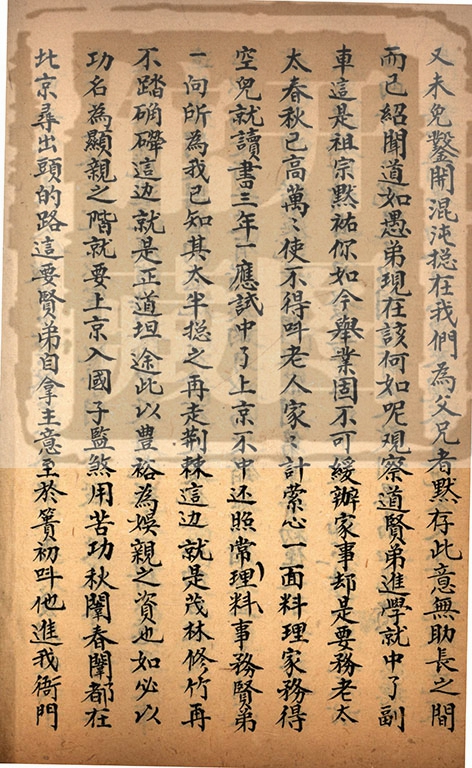 又未免鑿開混沌捴在我們為父兄者黙存此意無助長之間
而已紹聞道如愚弟現在該何如呢观察道賢弟進學就中了副
車這是祖宗黙祐你如今舉業固不可緩辦家事却是要務老太
太春秋已高萬〻使不得呌老人家〻計縈心一面料理家務得
空兒就讀書三年一應試中了上京不中还照常理料事務賢弟
一向所為我已知其太半捴之再走荆棘這边就是茂林修竹再
不踏确礐這边就是正道坦途此以豊裕為娛親之資也如必以
功名為顯親之階就要上京入國子監煞用苦功秋闈春闈都在
北京尋出頭的路這要賢弟自拿主意至於簣初呌他進我衙門